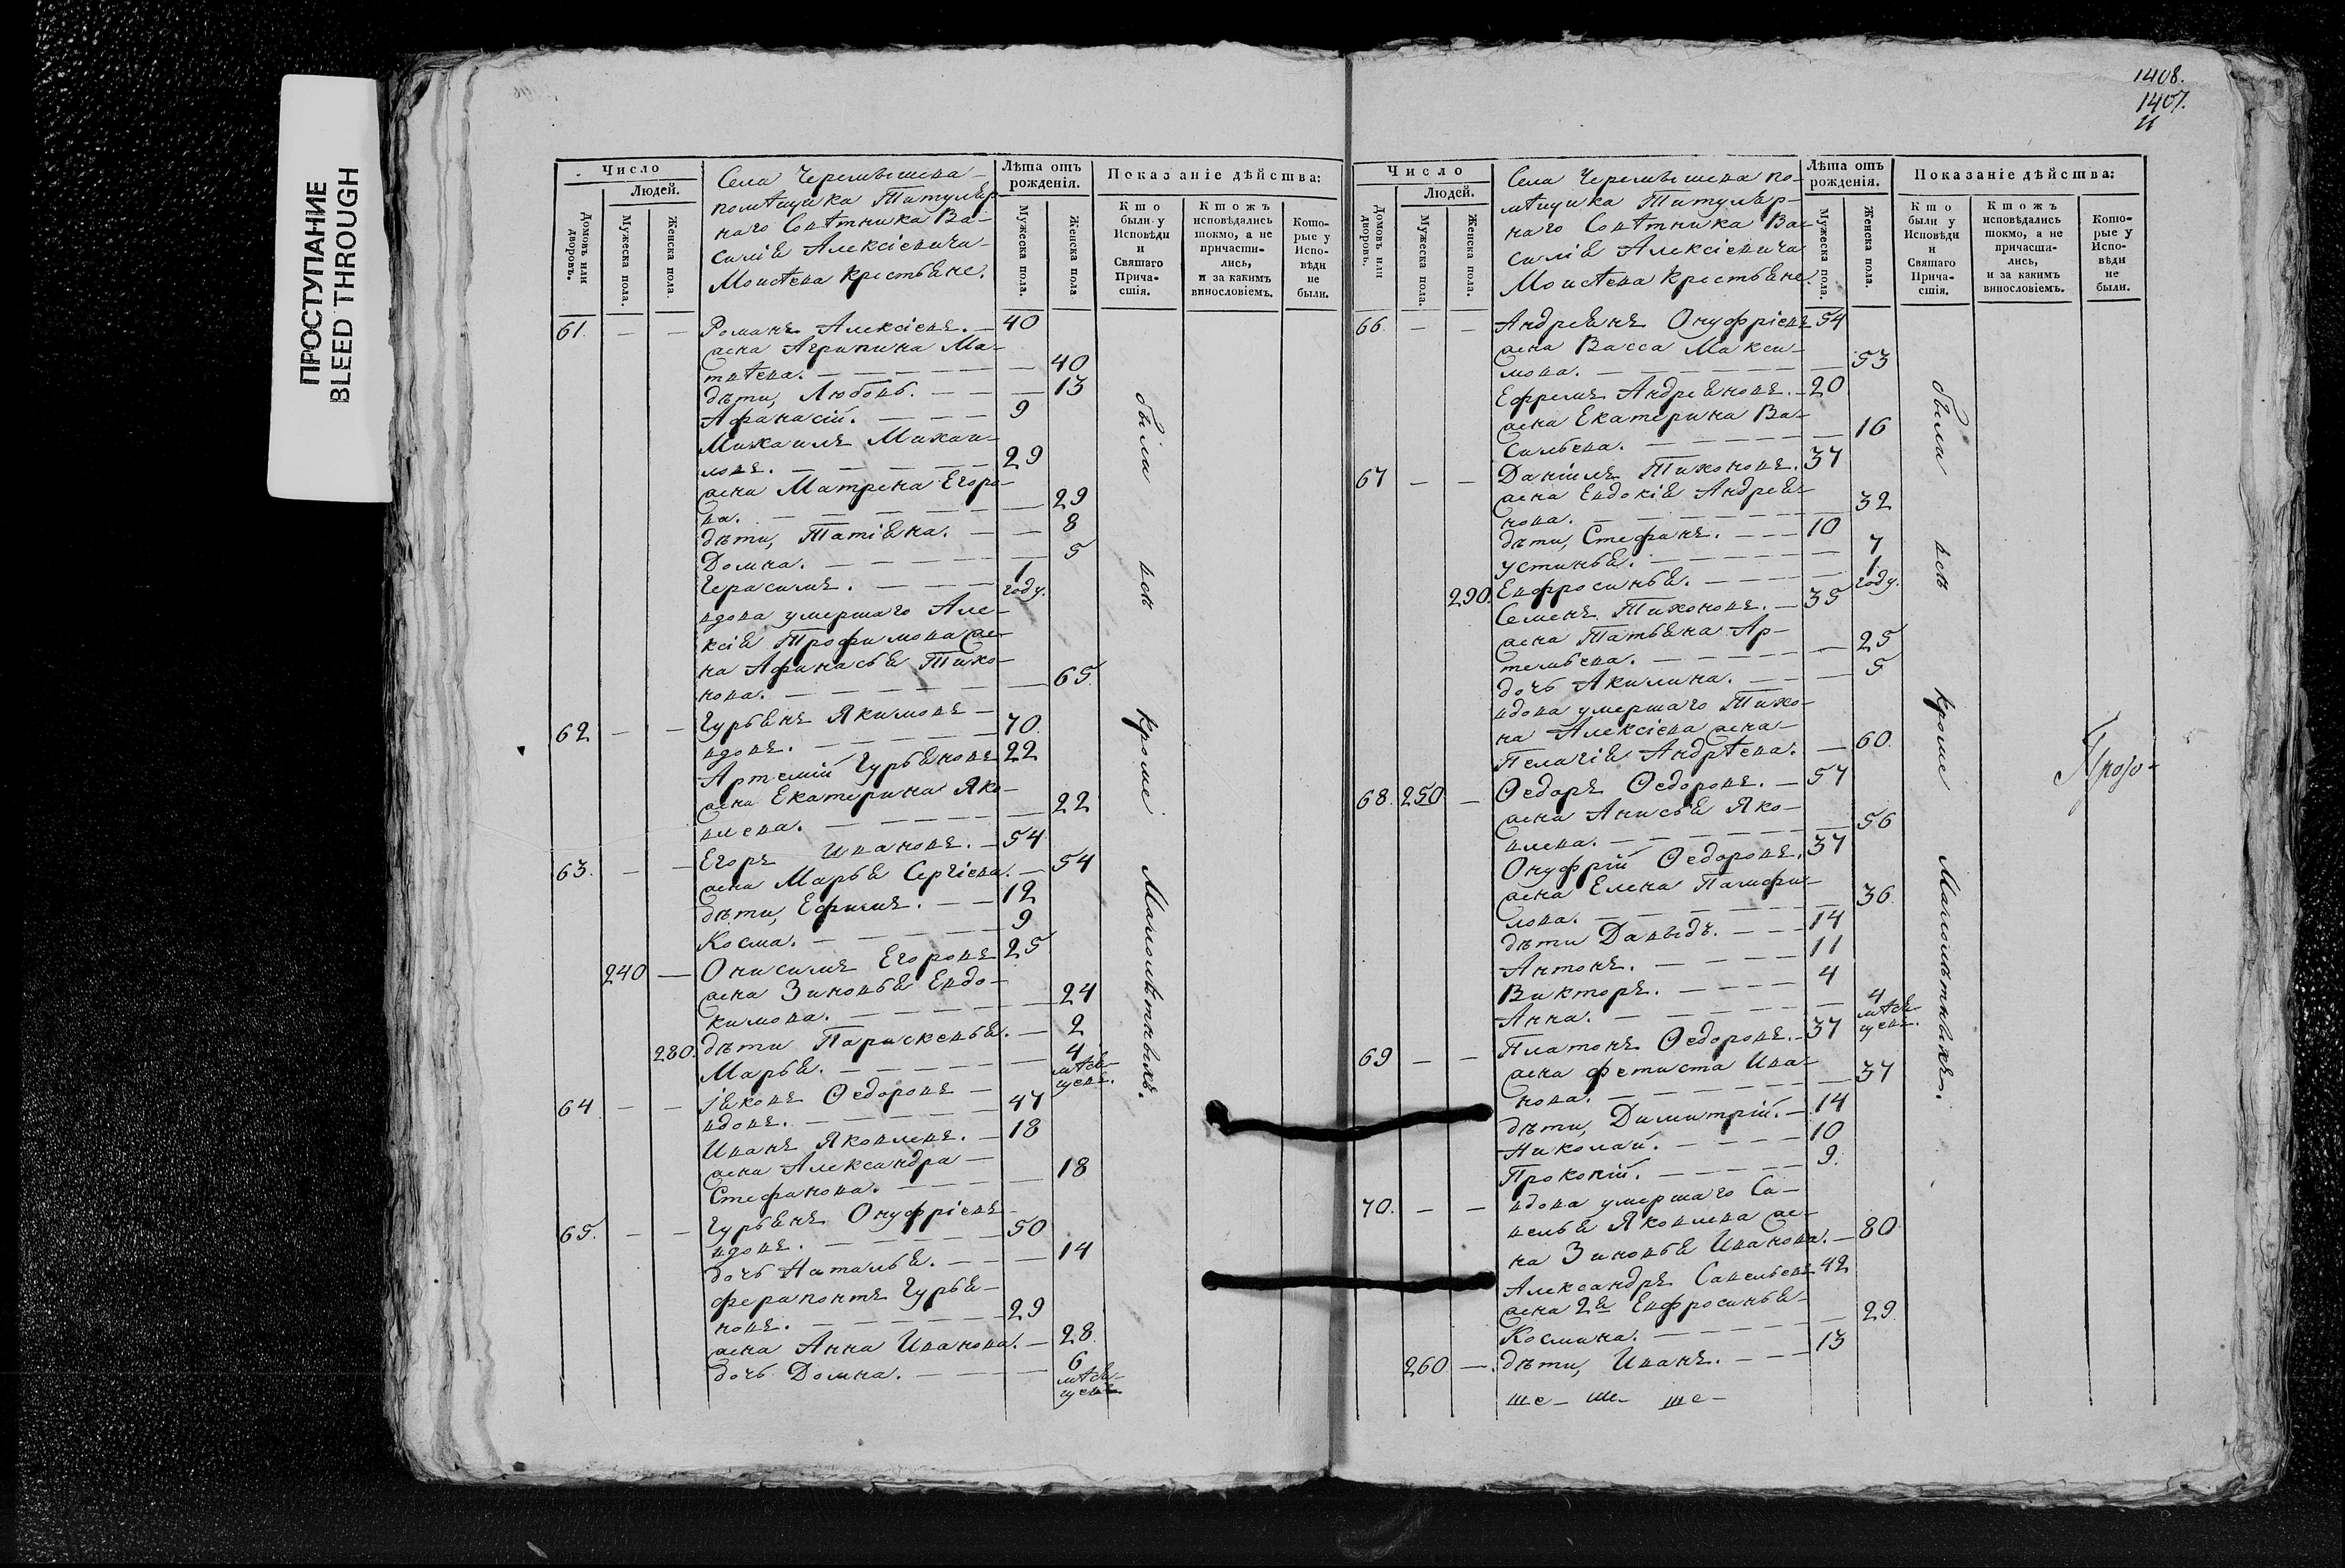 ПРОСТУПАНИЕ
BLEED THROUGH
Число
Людей.
Домовъ или дворовъ.
Мужеска пола.
Женска пола.
Села Черемьшева
помѣщика Титуляр-
наго Совѣтника Ва-
силія Алексіевича
Моисѣева крестьяне.
Лѣта отъ
рожденія.
Мужеска пола.
Женска пола
Показаніе дѣйства:
Кто
были у
Исповѣди
и
Святаго
Прича-
стія.
Ктожъ
исповѣдались
токмо, а не
причасти-
лись,
и за какимъ
винословіемъ.
Кото-
рые у
Испо-
вѣди
не
были.
61. — — Романъ Алексіевъ. — 40
жена Агрипина Ма-
твѣева. — 40
дѣти, Любовь. — — 13
Афанасій. — 9
Михаилъ Михаи-
ловъ. — 29
жена Матрена Егоро-
ва. — 29
дѣти, Татіяна. — — 8
Домна. — 5
Герасимъ. — 1 году.
вдова умершаго Але-
ксія Трофимова же-
на Афанасья Тихо-
нова. — 65.
62. — — Гурьянъ Якимовъ —
вдовъ. — 70.
Артемій Гурьяновъ 22
жена Екатерина Яко-
влева. — 22
63. — — Егоръ Ивановъ. — 54
жена Марья Сергіева. — 54
дѣти, Ефимъ. — — 12
Косма. — 9
240 — Онисимъ Егоровъ 25
жена Зиновья Евдо-
кимова. — 24
280. дѣти Парискевья. — 2
Марья. — 4 мѣся-
цевъ.
64. — — Іяковъ Ѳедоровъ —
вдовъ. — 47
Иванъ Яковлевъ. — 18
жена Александра —
Стефанова. — 18
65. — — Гурьянъ Онуфріевъ
вдовъ. — 50
дочь Наталья. — 14
Ферапонтъ Гурья-
новъ. — 29
жена Анна Иванова. — 28.
дочь Домна. — 6 мѣся-
цевъ
были всѣ кроме Малолѣтныхъ.
1408.
1407.
Число
Людей.
Домовъ или дворовъ.
Мужеска пола.
Женска пола.
Села Черемьшева по-
мѣщика Титуляр-
наго Совѣтника Ва-
силія Алексіевича
Моисѣева крестьяне.
Лѣта отъ
рожденія.
Мужеска пола.
Женска пола.
Показаніе дѣйства:
Кто
были у
Исповѣди
и
Святаго
Прича-
стія.
Ктожъ
исповѣдались
токмо, а не
причасти-
лись,
и за какимъ
винословіемъ.
Кото-
рые у
Испо-
вѣди
не
были.
66. — — Андреянъ Онуфріевъ 54
жена Васса Макси-
мова. — 53
Ефремъ Андреяновъ. — 20
жена Екатерина Ва-
сильева. — 16
67 — — Даніилъ Тихоновъ. 37
жена Евдокія Андрея-
нова. — 32
дѣти, Стефанъ. — 10
Устинья. — 7
290. Евфросинья. — 1 году.
Семенъ Тихоновъ. — 35
жена Татьяна Ар-
темьева. — 25
дочь Акилина. — 5
вдова умершаго Тихо-
на Алексіева жена
Пелагія Андрѣева. — 60.
68. 250 — Ѳедоръ Ѳедоровъ. — 57
жена Анисья Яко-
влева. — 56
Онуфрій Ѳедоровъ. 37
жена Елена Памфи-
лова. — 36.
дѣти Давыдъ. — 14
Антонъ. — 11
Викторъ. — 4
Анна. — 4 мѣся-
цевъ.
69 — — Платонъ Ѳедоровъ. — 37
жена Фетиста Ива-
нова. — 37
дѣти, Димитрій. — 14
Николай. — 10
Прокопій. — 9.
70. — — вдова умершаго Са-
велья Яковлева же-
на Зиновья Иванова. — 80
Александръ Савельевъ 42
жена 2я Евфросинья
Космина. — 29.
260 — дѣти, Иванъ. — 13
были всѣ кроме Малолѣтныхъ.